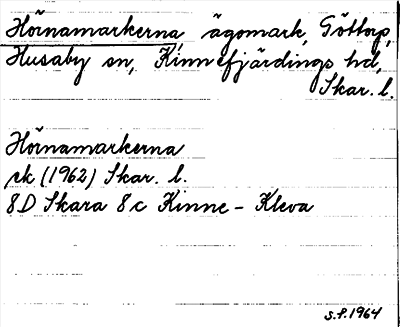 Hörnamarkerna, ägomark, Göttorp,
Husaby sn, Kinnefjärdings hd,
Skar. l.
Hörnamarkerna
ek (1962) Skar. l.
8D Skara 8c Kinne-Kleva
S.F. 1964